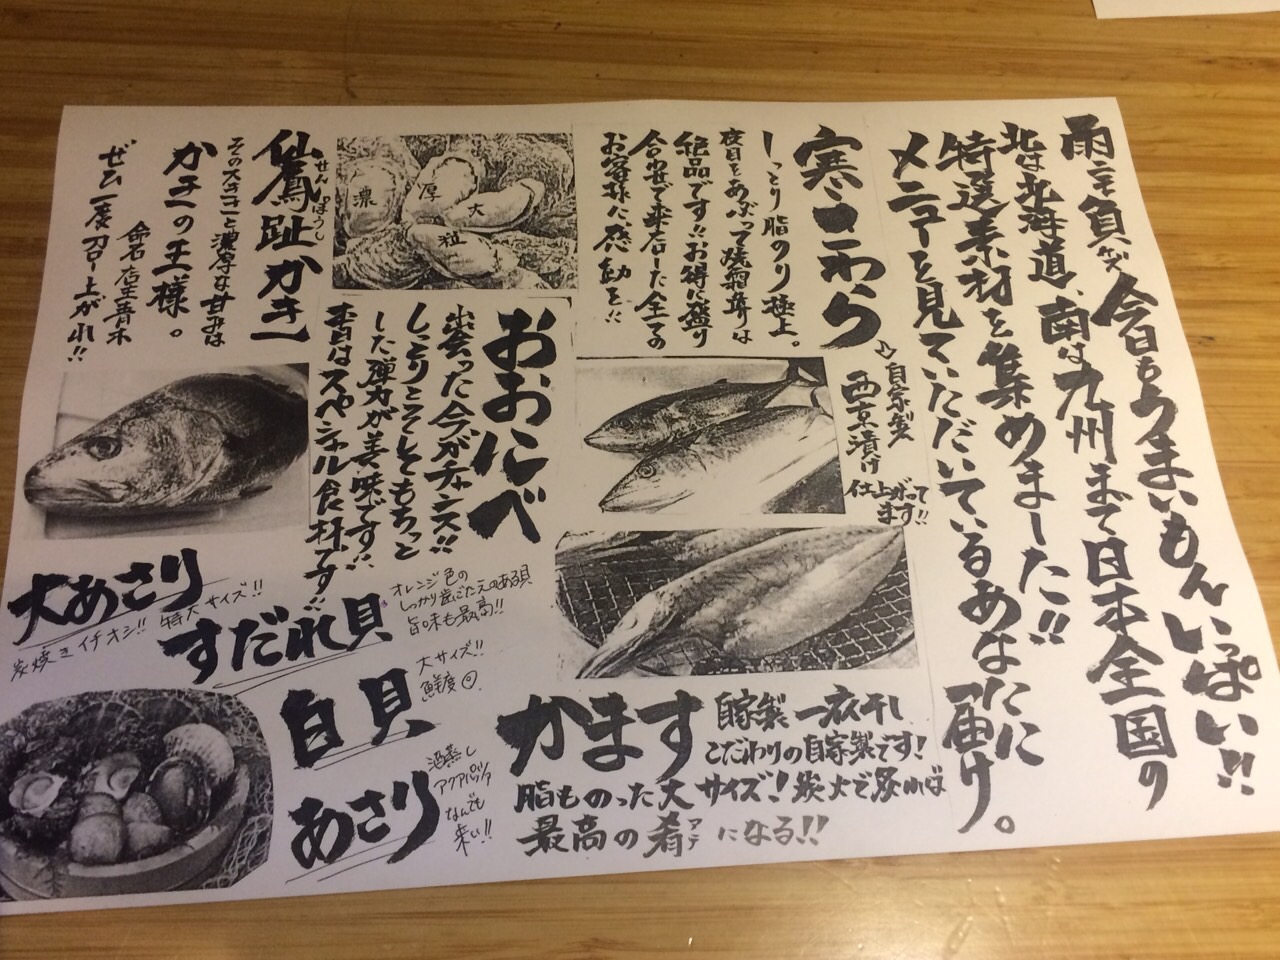 雨ニモ負ケズ今日もうまいもんいっぱい!!
北は北海道、南は九州まで日本全国の
特選素材を集めました!!
メニューを見ていただいているあなたに届け。
寒さわら
しっとり脂のり極上。
皮目をあぶって焼霜造りは
絶品です!!お得に盛り
合わせで来店した全ての
お客様に感動を!!
自家製
西京漬け
仕上がって
ます!!
濃
厚
大
粒
仙鳳趾かき
せんぽうし
その大きさと濃厚な甘みは
かきの王様。
命名店主青木
ぜひ一度召し上がれ!!
おおにべ
出会った今がチャンス!!
しっとりとそしてもちっと
した弾力が美味です!!
本日はスペシャル食材です!!
大あさり
特大サイズ!!
炭焼きイチオシ!!
すだれ貝
オレンジ色の
しっかり歯ごたえのある貝
旨味も最高!!
白貝
大サイズ!!
鮮度◎
あさり
酒蒸し
アクアパッツァ
なんでも
来い!!
かます
自家製一夜干し
こだわりの自家製です!
脂ものった大サイズ!炭火で炙れば
最高の肴になる!!
アテ